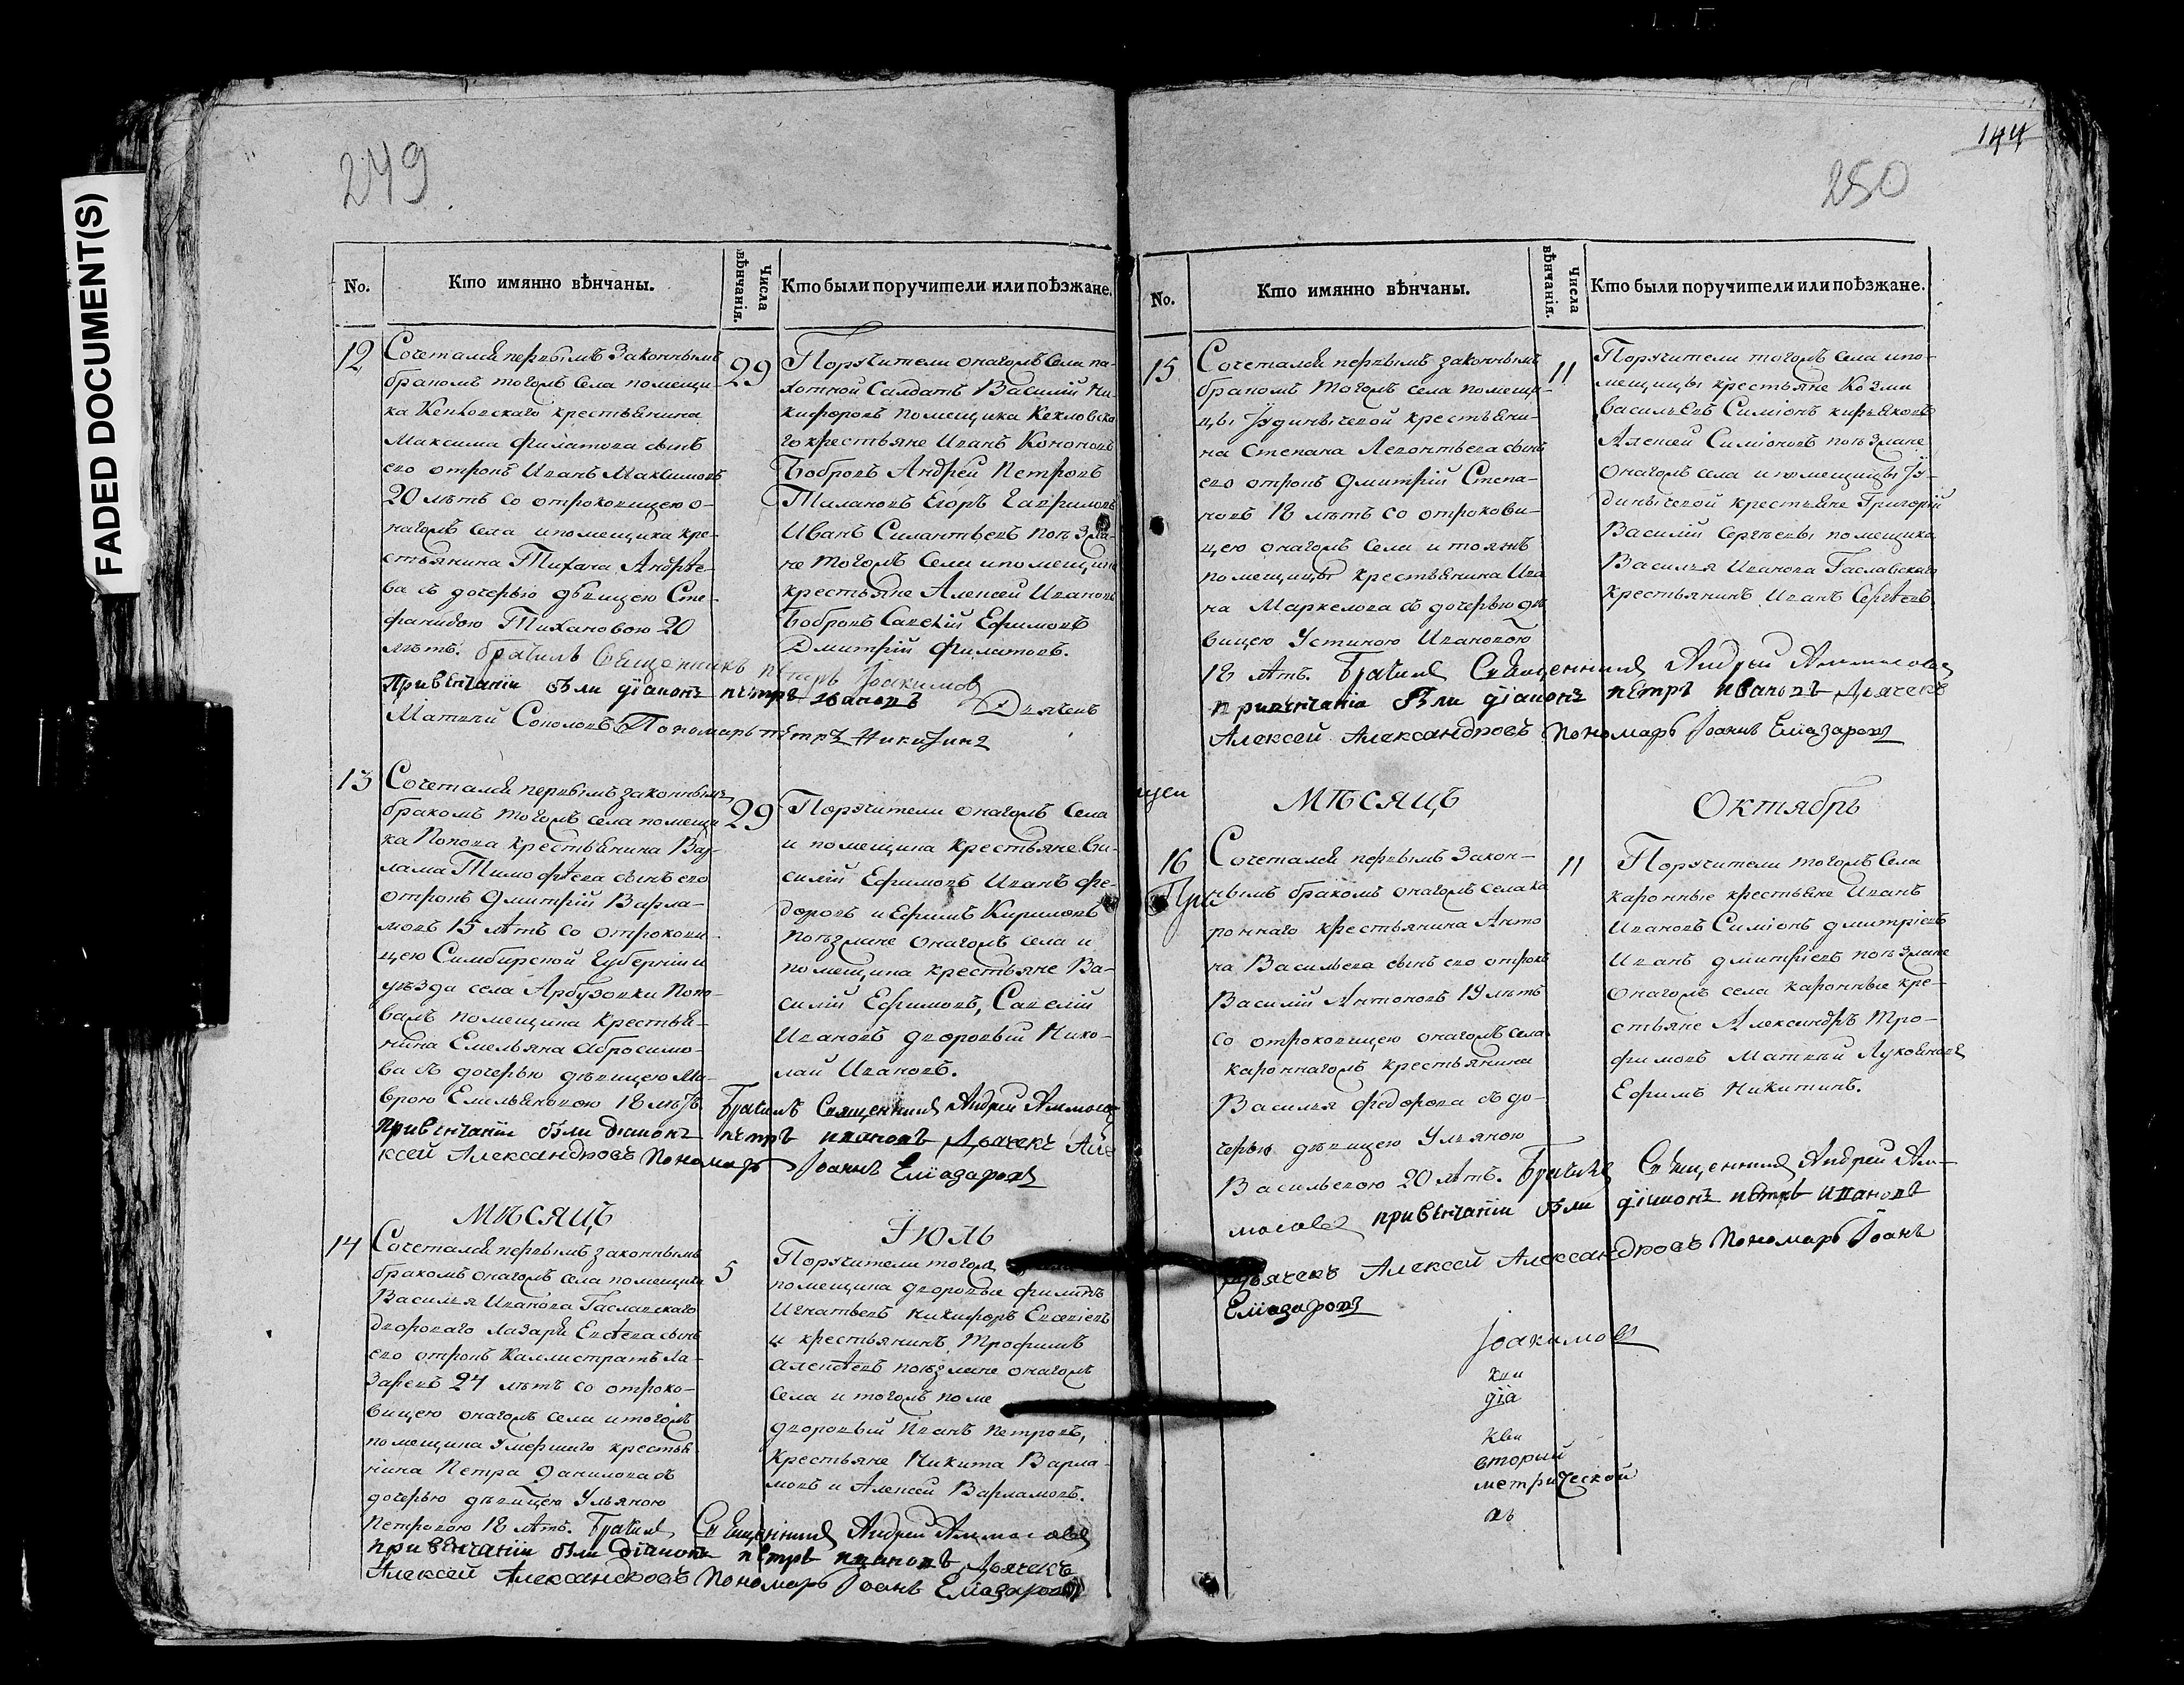 144
249
250
FADED DOCUMENT(S)
No.
Кто имянно вѣнчаны.
Числа вѣнчанія.
Кто были поручители или поѣзжане.
12
Сочетался первымъ законнымъ
бракомъ тогожъ села помещи-
ка крестьянина
Максима Филатова сынъ
его отрокъ Иванъ Максимовъ
20 лѣтъ со отроковицею о-
нагожъ села и помещика кре-
стьянина Тихана Андрѣе-
ва съ дочерью дѣвицею Сте-
фанидою Тихановою 20
лѣтъ. брачилъ Священникъ петръ Іоакимовъ
При венчаніи были діаконъ петръ ивановъ Дьячекъ
Матвей Соколовъ Пономарь петръ Никитинъ
29
Поручители онагожъ села па-
хотной Салдатъ Василий Ни-
кифоровъ помещика
крестьяне Иванъ Кононовъ
Бобровъ Андрей Петровъ
Егоръ Гавриловъ
Иванъ Силантьевъ поѣзжа-
не тогожъ села и помещика
крестьяне Алексей Ивановъ
Бобровъ Савелій Ефимовъ
Дмитрій Филатовъ.
13
Сочетался первымъ законнымъ
бракомъ тогожъ села помещи-
ка Попова крестьянина Вар-
лама Тимофѣева сынъ его
отрокъ Дмитрій Варла-
мовъ 15 лѣтъ со отрокови-
цею Симбирской Губерніи и
уѣзда села Арбузовки
помещика крестья-
нина Емельяна Абросимо-
ва съ дочерью дѣвицею Ма-
врою Емельяновою 18 лѣтъ. Брачилъ Священникъ Андрей Аммосовъ
при венчаніи были діаконъ петръ ивановъ Дьячекъ Але-
ксей Александровъ Пономарь Іоаннъ Еліазаровъ
29
Поручители онагожъ села
и помещика крестьяне Ва-
силій Ефимовъ Иванъ Фе-
доровъ и Ефимъ Кириловъ
поѣзжане онагожъ села и
помещика крестьяне Ва-
силій Ефимовъ, Савелій
Ивановъ дворовый Нико-
лай Ивановъ.
Мѣсяцъ
Іюль
14
Сочетался первымъ законнымъ
бракомъ онагожъ села помещика
Василья Иванова Гаславскаго
дворового Лазаря сынъ
его отрокъ Каллистратъ Ла-
заревъ 24 лѣтъ со отроко-
вицею онагожъ села и тогожъ
помещика умершаго крестья
нина Петра Данилова съ
дочерью дѣвицею Ульяною
Петровою 18 лѣтъ. Брачилъ Священникъ Андрей Аммосовъ
при венчаніи были діаконъ петръ ивановъ Дьячекъ
Алексей Александровъ Пономарь Іоаннъ Еліазаровъ
5
Поручители тогожъ
помещика дворовые Филипъ
Игнатьевъ Никифоръ
и крестьянинъ Трофимъ
Алексѣевъ поѣзжане онагожъ
села и тогожъ поме
дворовый Иванъ Петровъ,
крестьяне Никита Варла-
мовъ и Алексей Варламовъ.
No.
Кто имянно вѣнчаны.
Числа вѣнчанія.
Кто были поручители или поѣзжане.
15
Сочетался первымъ законнымъ
бракомъ тогожъ села помещи-
цы крестьяни-
на Степана Леонтьева сынъ
его отрокъ Дмитрій Степа-
новъ 18 лѣтъ со отрокови-
цею онагожъ села и тояжъ
помещицы крестьянина Ива
на Маркелова съ дочерью дѣ
вицею Устиною Ивановою
18 лѣтъ. Брачилъ Священникъ Андрей Аммосовъ
при венчаніи были діаконъ петръ ивановъ Дьячекъ
Алексей Александровъ Пономарь Іоаннъ Еліазаровъ
11
Поручители тогожъ села и по-
мещицы крестьяне Козма
Васильевъ Симіонъ Кирьяковъ
Алексей Симіоновъ поѣзжане
онагожъ села и помещицы
крестьяне Григорій
Василий Сергѣевы помещика
Василья Иванова Гаславскаго
крестьянинъ Иванъ Сергѣевъ
Мѣсяцъ
Октябрь
16
Сочетался первымъ закон-
нымъ бракомъ онагожъ села ка
роннаго крестьянина Анто
на Васильева сынъ его отрокъ
Василій Антоновъ 19 лѣтъ
со отроковицею онагожъ села
кароннагожъ крестьянина
Василья Федорова съ до-
черью дѣвицею Ульяною
Васильевою 20 лѣтъ. Брачилъ Священникъ Андрей Ам-
мосовъ при венчаніи были діаконъ петръ ивановъ
Дьячекъ Алексей Александровъ Пономарь Іоаннъ
Еліазаровъ
11
Поручители тогожъ села
каронные крестьяне Иванъ
Ивановъ Симіонъ Дмитріевъ
Иванъ Дмитріевъ поѣзжане
онагожъ села каронные кре-
стьяне Александръ Тро-
фимовъ Матвей Лукояновъ
Ефимъ Никитинъ.
Іоакимовъ
діа
вторый
метрической